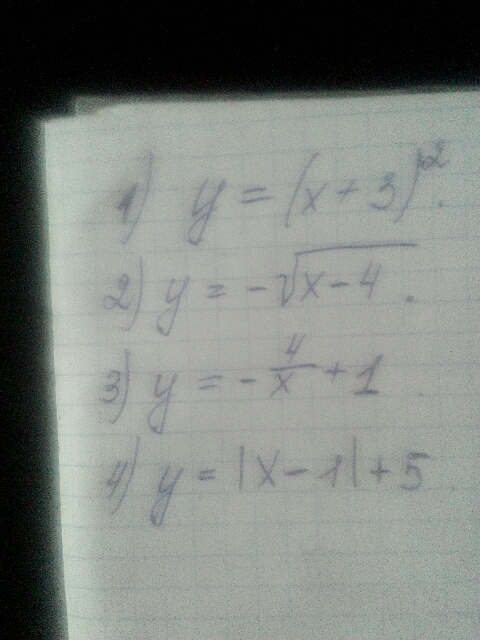 1) y = (x+3)².
2) y = -√(x-4).
3) y = -4/x + 1
4) y = |x-1|+5